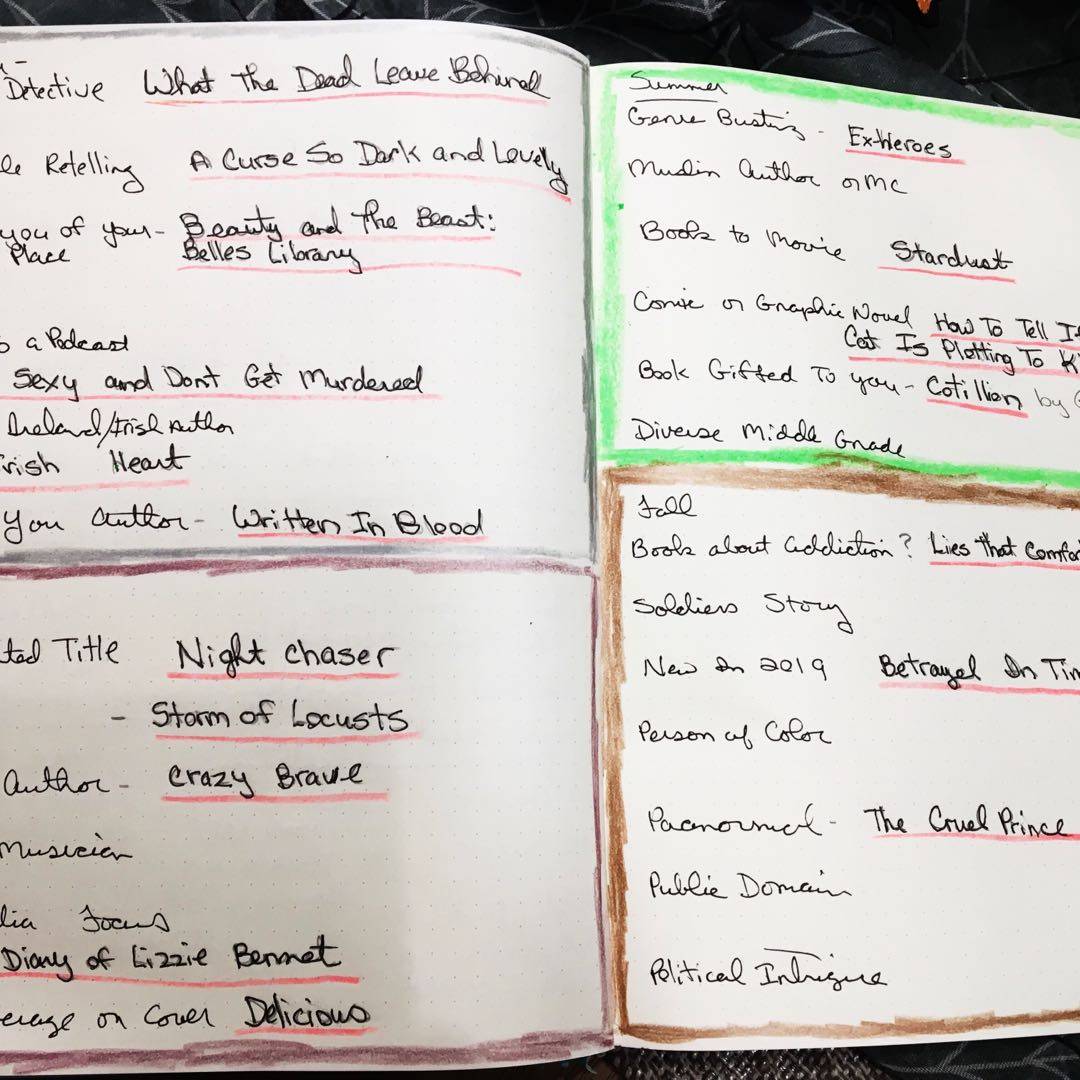 Detective What The Dead Leave Behind
le Retelling A Curse So Dark and Lovely
you of your- Beauty and The Beast:
Place Belles Library
a Podcast
Sexy and Dont Get Murdered
Ireland/Irish Author
rish Heart
You Author - Written In Blood
ted Title Night Chaser
- Storm of Locusts
Author - Crazy Brave
Musician
dia Focus
Diary of Lizzie Bennet
erage on Cover Delicious
Summer
Genre Busting - Ex-Heroes
Muslim Author or MC
Book to Movie Stardust
Comic or Graphic Novel How To Tell If
Cat Is Plotting To K
Book Gifted To you - Cotillion by G
Diverse Middle Grade
Fall
Book about addiction? Lies That Comfor
Soldiers Story
New In 2019 Betrayal In Tim
Person of Color
Paranormal - The Cruel Prince
Public Domain
Political Intrigue